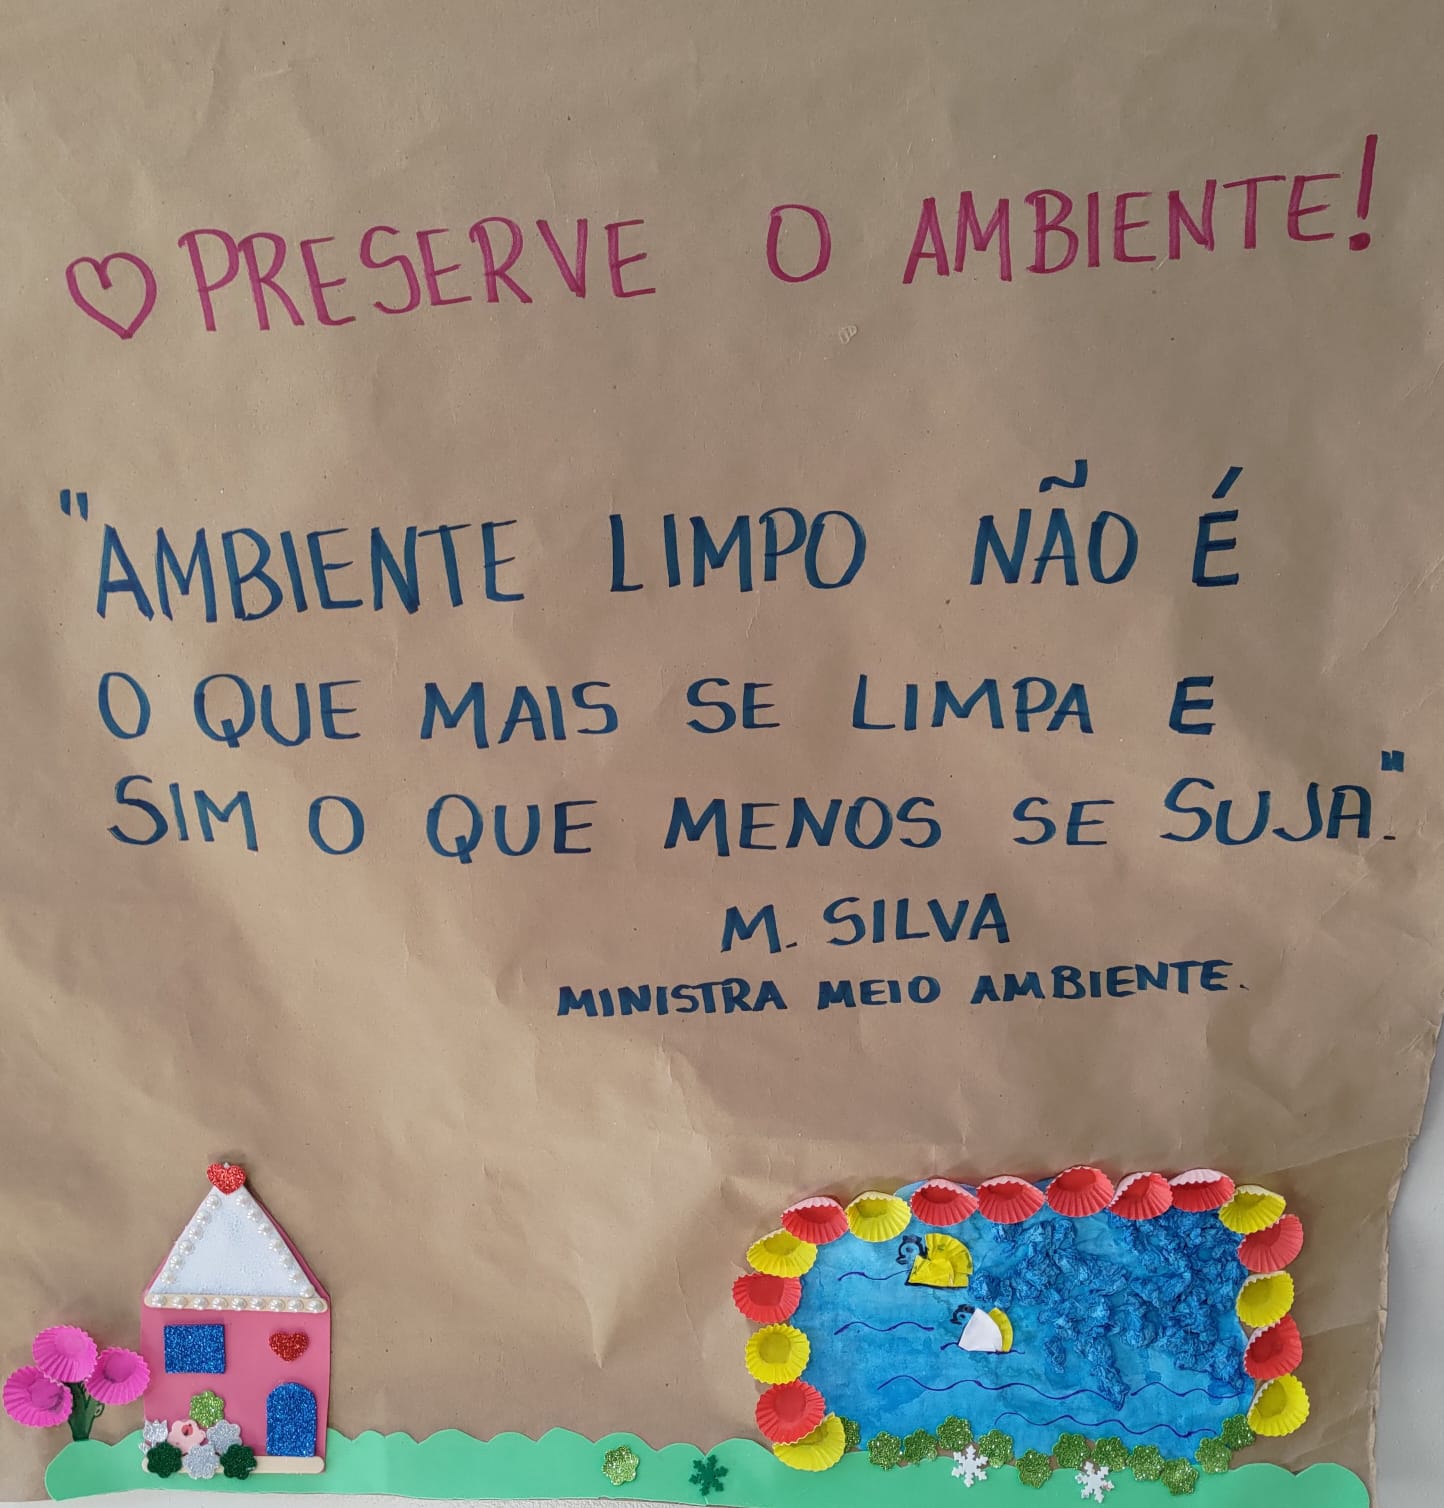 ♡ PRESERVE O AMBIENTE!
"AMBIENTE LIMPO NÃO É
O QUE MAIS SE LIMPA E
SIM O QUE MENOS SE SUJA."
M. SILVA
MINISTRA MEIO AMBIENTE.